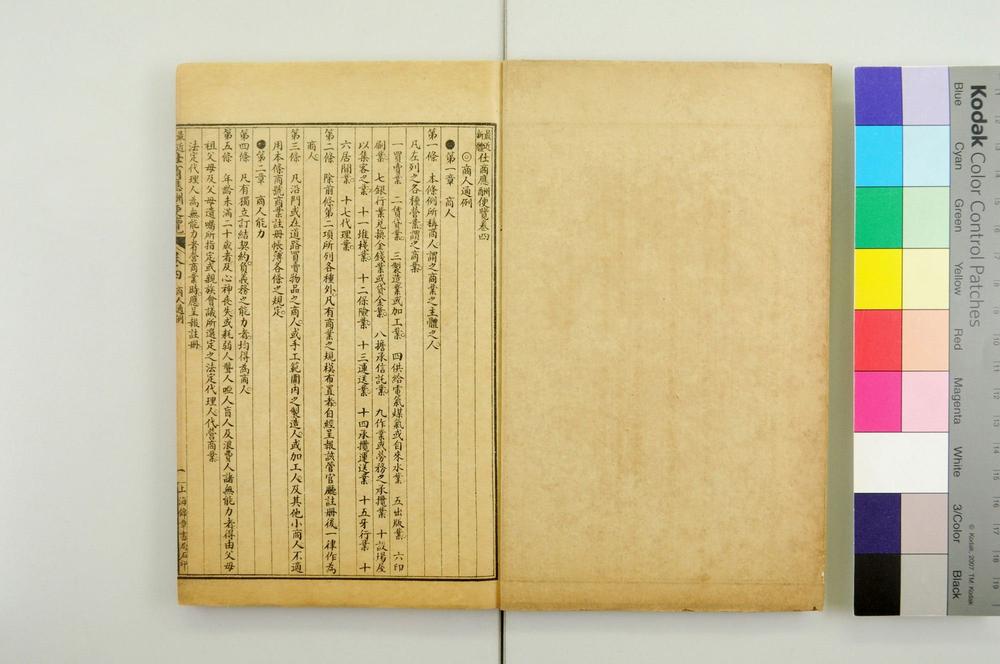 最近新體仕商應酬便覽卷四
◎商人通例
●第一章 商人
第一條 本條例所稱商人謂之商業之主體之人
凡左列之各種營業謂之商業
一買賣業 二賃貸業 三製造業或加工業 四供給電氣煤氣或自來水業 五出版業 六印
刷業 七銀行業兌換金錢業或貸金業 八擔承信託業 九作業或勞務之承攬業 十設場屋
以集客之業 十一堆棧業 十二保險業 十三運送業 十四承攬運送業 十五牙行業 十
六居間業 十七代理業
第二條 除前條第二項所列各種外凡有商業之規模布置者自經呈報該管官廳註册後一律作為
商人
第三條 凡沿門或在道路買賣物品之商人或手工範圍內之製造人或加工人及其他小商人不適
用本條商號商業註册帳簿各條之規定
●第二章 商人能力
第四條 凡有獨立訂結契約負義務之能力者均得為商人
第五條 年齡未滿二十歲者及心神喪失或耗弱人聾人啞人盲人及浪費人諸無能力者得由父母
祖父母及父母遺囑所指定或親族會議所選定之法定代理人代營商業
法定代理人為無能力者營商業時應呈報註册
最近仕商應酬便覽 卷四 商人通例 一 上海錦章書局石印
Kodak Color Control Patches
Blue Cyan Green Yellow Red Magenta White 3/Color Black
© Kodak, 2007 TM: Kodak